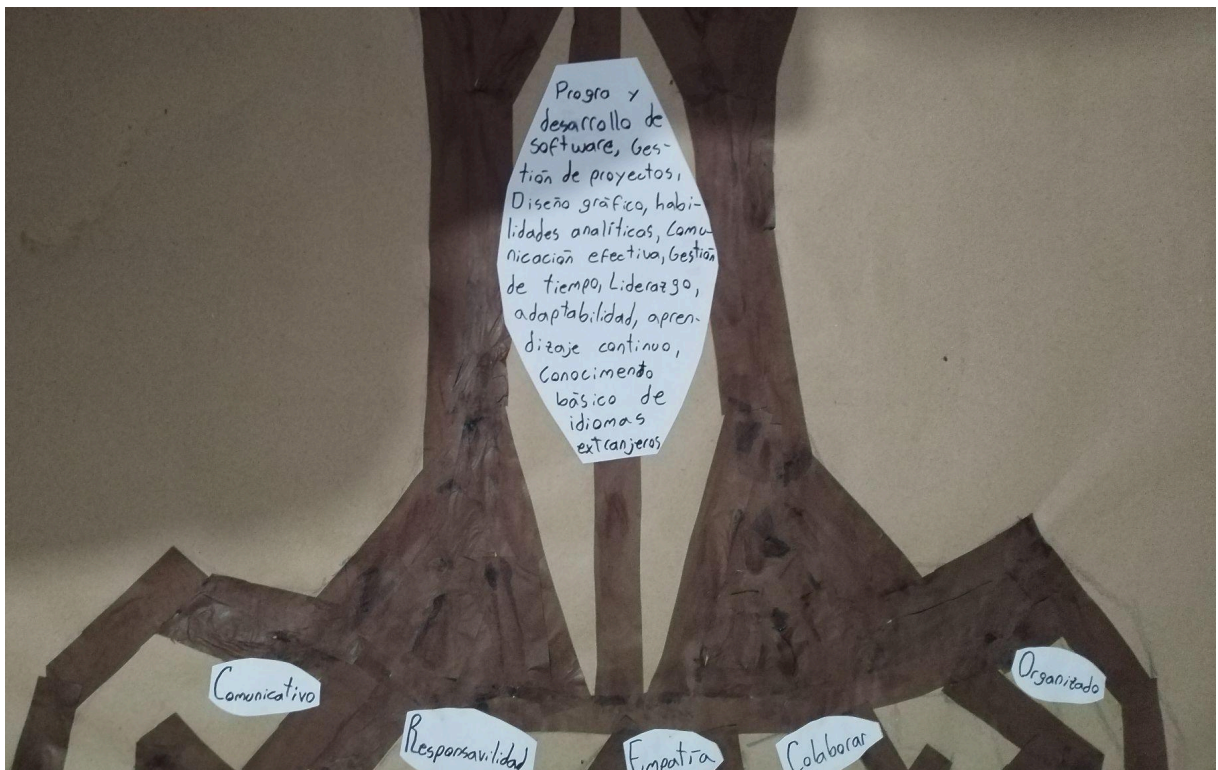 Progra y
desarrollo de
software, Ges-
tión de proyectos,
Diseño gráfico, habi-
lidades analíticas, Comu
nicación efectiva, Gestión
de tiempo, Liderazgo,
adaptabilidad, apren-
dizaje continuo,
Conocimento
básico de
idiomas
extranjeros
Comunicativo
Responsavilidad
Empatía
Colaborar
Organizado